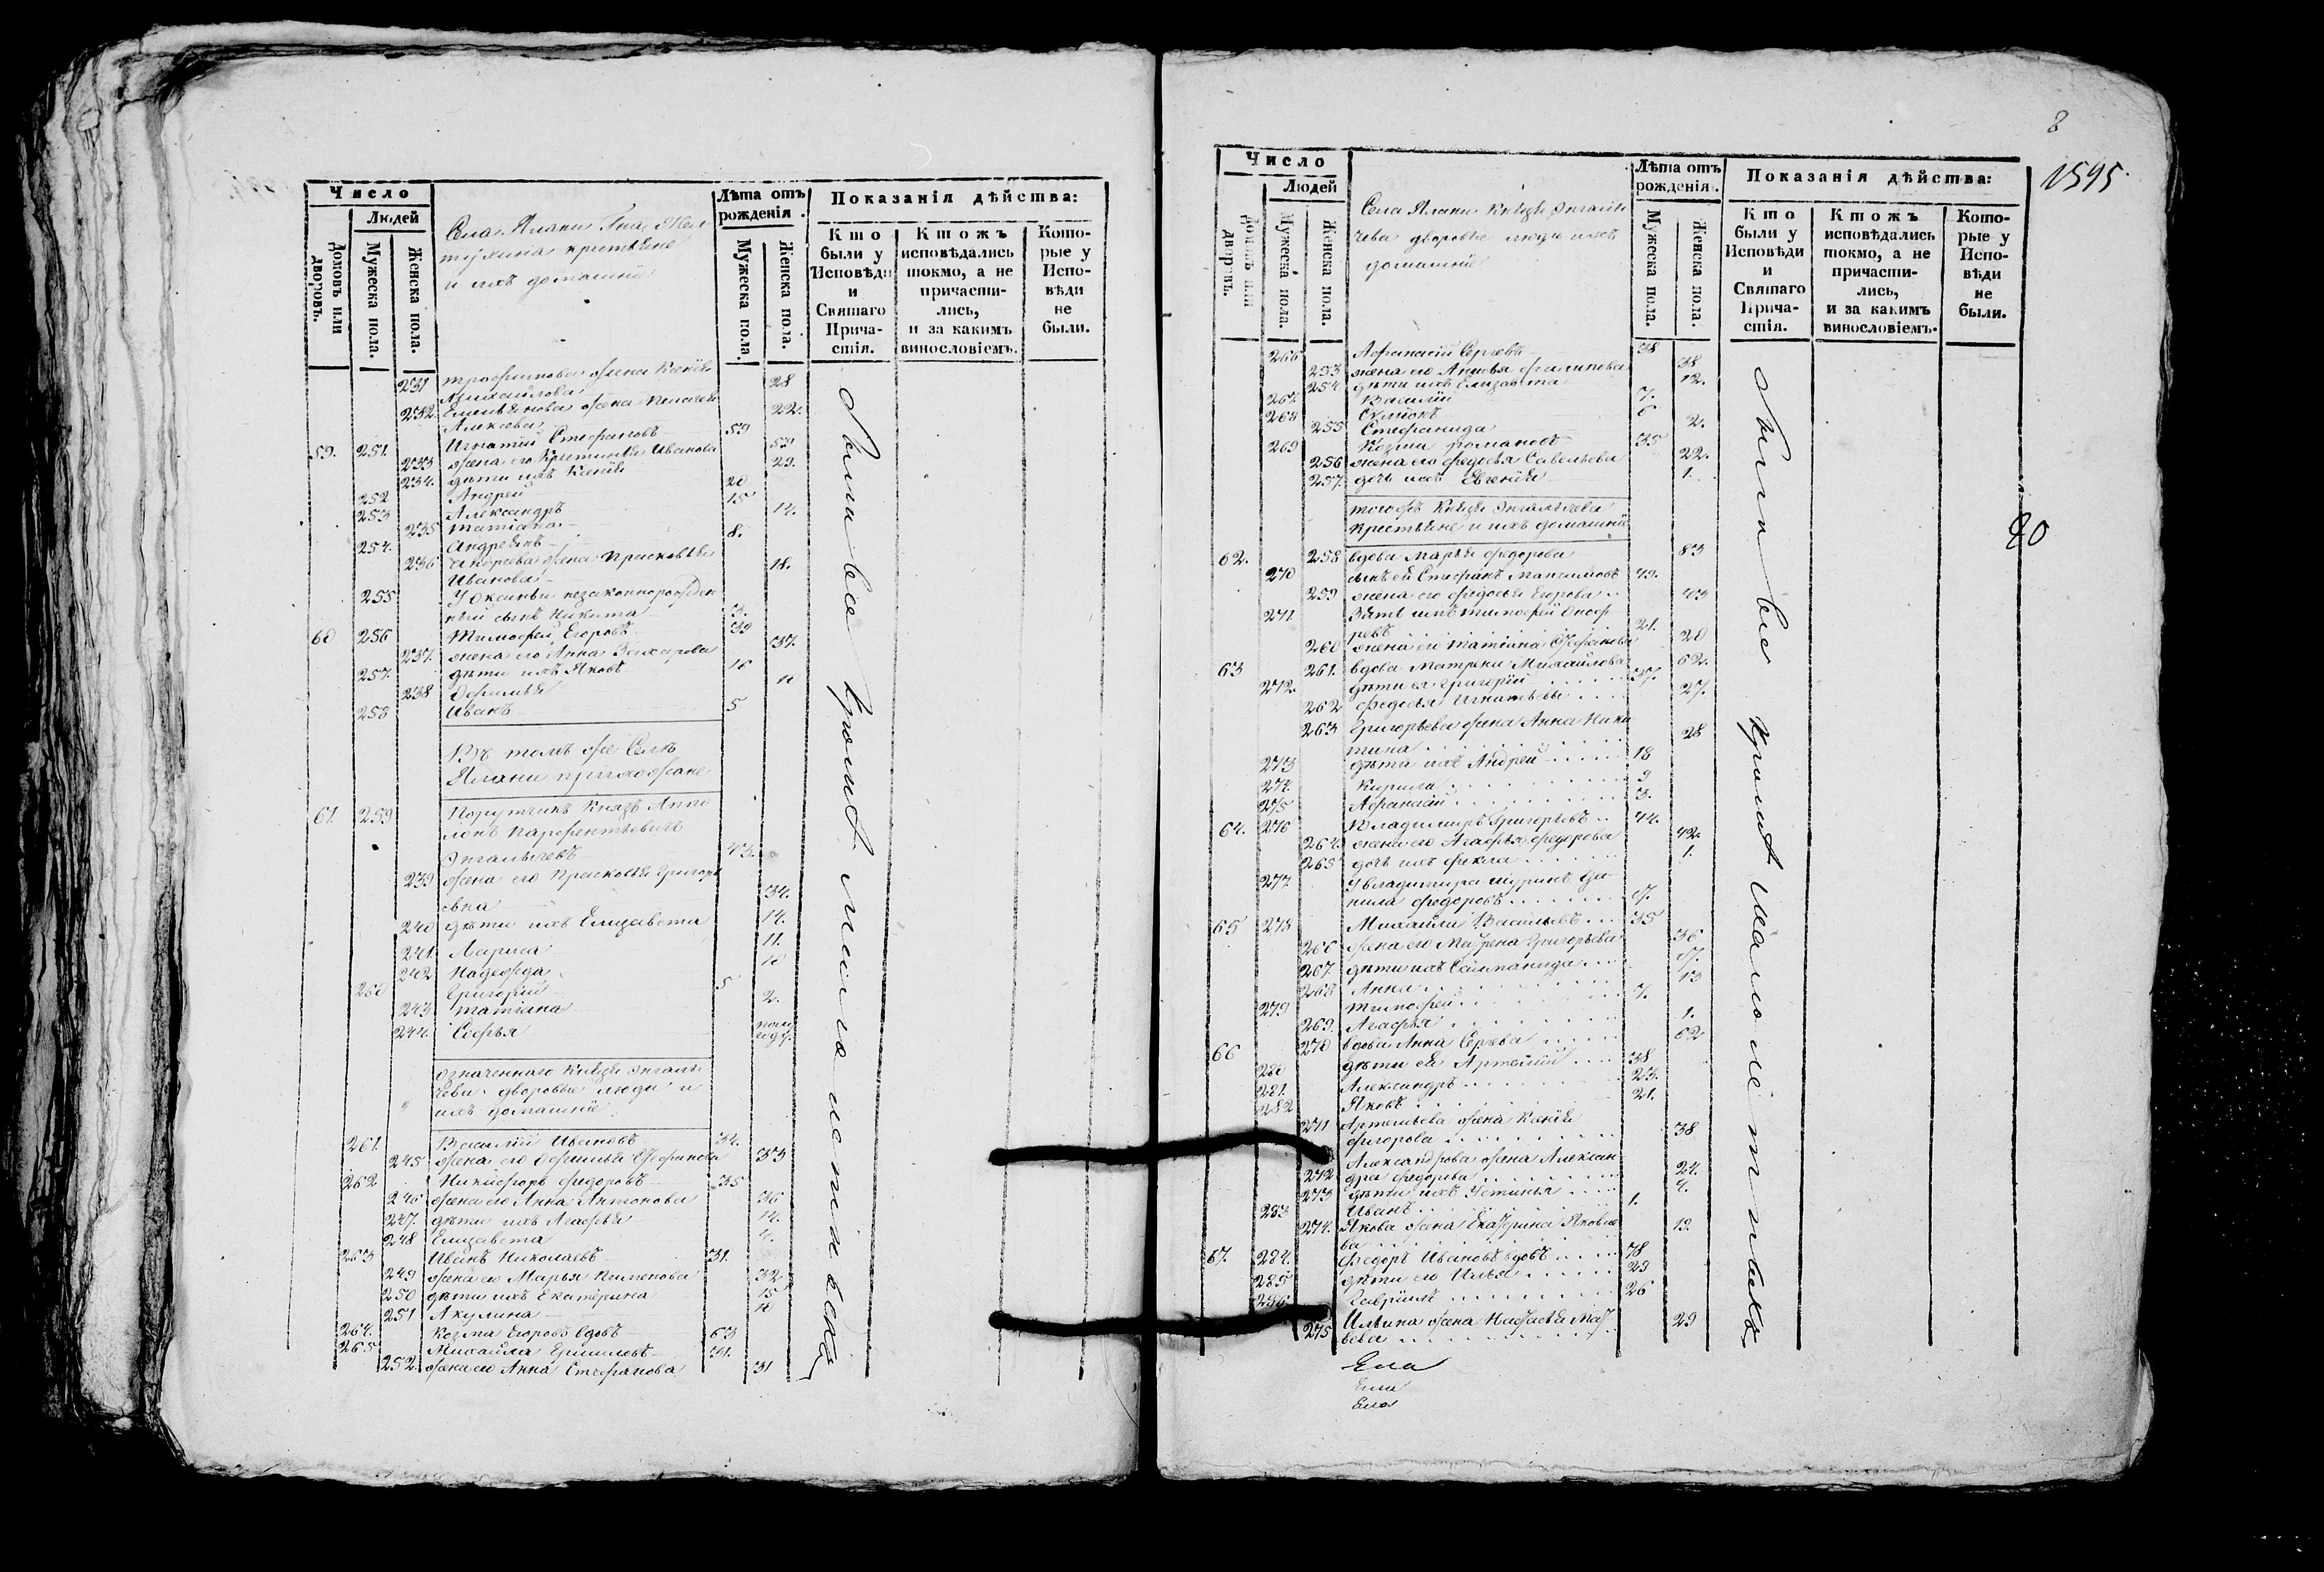 Число
Людей
Домовъ или дворовъ.
Мужеска пола.
Женска пола.
Села Алани Гна
крестьяне
и ихъ домашніе
Лѣта отъ рожденія.
Мужеска пола.
Женска пола.
Показанія дѣйства:
Кто были у Исповѣди и Святаго Причастія.
Ктожъ исповѣдались токмо, а не причастились, и за какимъ винословіемъ.
Которые у Исповѣди не были.
231 Трофимова жена Ксенія 28
Михайлова
232. жена Пелагея 22.
Алексѣева
59. 251. Игнатій Стефановъ 59
233 жена его Христинья Иванова 59
234. дѣти ихъ Ксенія 29.
252 Андрей 20
253 Александръ 15
235 Татіана 14.
254. Андреянъ 8.
236 Андреева жена Прасковья 18.
Иванова
255 У Оксиньи незаконнорожден
ный сынъ Никита 3.
60 256 Тимофей Егоровъ 39
237. жена его Анна Захарова 37.
257. дѣти ихъ Яковъ 16
238 Офимья 11
258 Иванъ 5
Въ томъ же Селѣ
Алани прихожане
61. 259 Порутчикъ Князь Аппо
лонъ Парфентьевичъ
Энгалычевъ 43.
239 жена его Прасковья Григорь
евна 34.
240 дѣти ихъ Елизавета 14.
241. Лариса 11.
242 Надежда 10
260 Григорій 5
243 Татіана 2.
244. Софья полу
году.
означеннаго Князя Энгалы
чева дворовые люди и
ихъ домашніе
261. Василій Ивановъ 34.
245 жена его Офимья Стефанова 33
262 Никифоръ Федоровъ 35
246 жена его Анна Антонова 36
247. дѣти ихъ Агафья 14.
248 Елизавета 4.
263 Иванъ Николаевъ 31.
249 жена его Марья Пименова 32
250 дѣти ихъ Екатерина 15
251 Акулина 10
264. Козма Егоровъ вдовъ 63
265 Михайла Ермиловъ 31.
252 жена его Анна Стефанова 31
были все кромѣ малолетнихъ
8
1595.
80
Число
Людей
Домовъ или дворовъ.
Мужеска пола.
Женска пола.
Села Алани Князя Энгалы
чева дворовые люди ихъ
домашніе
Лѣта отъ рожденія.
Мужеска пола.
Женска пола.
Показанія дѣйства:
Кто были у Исповѣди и Святаго Причастія.
Ктожъ исповѣдались токмо, а не причастились, и за какимъ винословіемъ.
Которые у Исповѣди не были.
266 Афанасій Сергѣевъ 38
253 жена его Анисья Филипова 38
254 дѣти ихъ Елизавета 12.
267. Василій 7.
268 6
255 Стефанида 2.
269 Козма Романовъ 35
256 жена его Федосья Савельева 22.
257. дочь ихъ Евгенія 1.
тогожъ Князя Энгалычева
крестьяне и ихъ домашніе
62. 258 вдова Марья Федорова 83
270 сынъ ей Стефанъ Максимовъ 49.
259 жена его Федосья Егорова 43
271. Зять ихъ Тимофей Оноф
ревъ 21.
260 жена его Татіана Стефанова 20
63 261. вдова Матрена Михайлова 62.
272. дѣти ея Григорій 37.
262 Федосья Игнатьевы 27.
263 Григорьева жена Анна Ники
тина 28
273 дѣти ихъ Андрей 18
274. Кирила 9
275 Афанасій 3.
64. 276 Владимиръ Григорьевъ 44.
264. жена его Агафья Федорова 42.
265 дочь ихъ Фекла 1.
277. У Владимира шуринъ Да
нила Федоровъ 17.
65 278 Михайла Васильевъ 35
266 жена его Матрена Григорьева 36
267. дѣти ихъ 17.
268 Анна 13
279 Тимофей 7.
269. Агафья 1.
66 270 вдова Анна Сергѣева 62
280 дѣти ея Артемій 38.
281. Александръ 23.
282 Яковъ 21.
271 Артемьева жена Ксенія
38
272 Александрова жена Алексан
дра Федорова 24.
273 дѣти ихъ Устинья 4.
283 Иванъ 1.
274. Якова жена Екатерина Яковле
ва 19.
67. 284. Федоръ Ивановъ вдовъ 78
285 дѣти его Илья 29
286 Гаврилъ 26
275 Ильина жена Настасья Мат
вева 29
были все кромѣ малолетнихъ
Ела
Ела
Ела